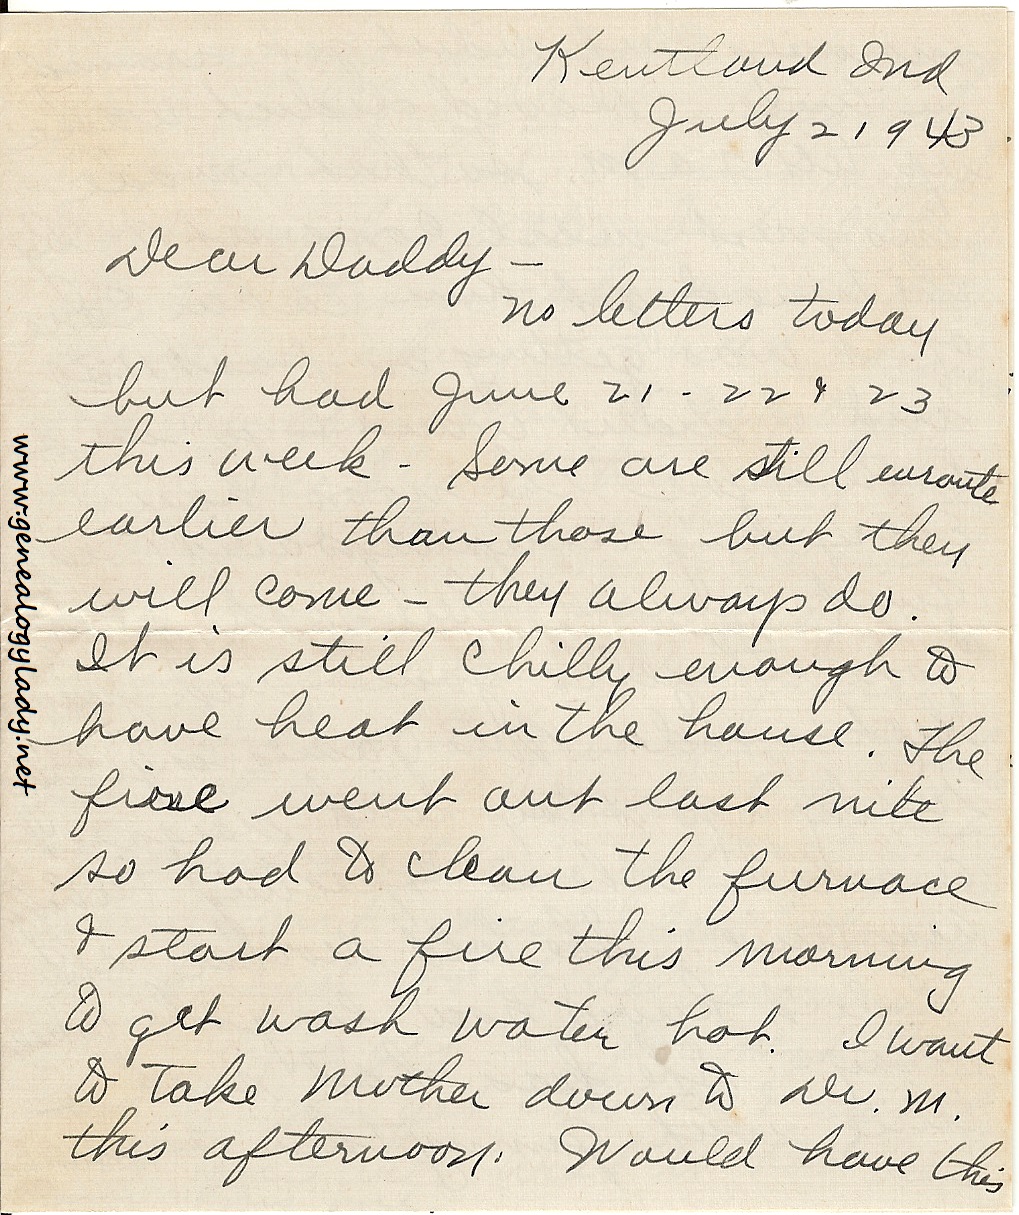 Kentland Ind
July 2 1943
Dear Daddy -
No letters today
but had June 21 - 22 & 23
this week - Some are still enroute
earlier than those but they
will come - they always do.
It is still chilly enough to
have heat in the house. The
fire went out last nite
so had to clean the furnace
& start a fire this morning
to get wash water hot. I want
to take Mother down to Dr. M.
this afternoon. Would have this
www.genealogylady.net